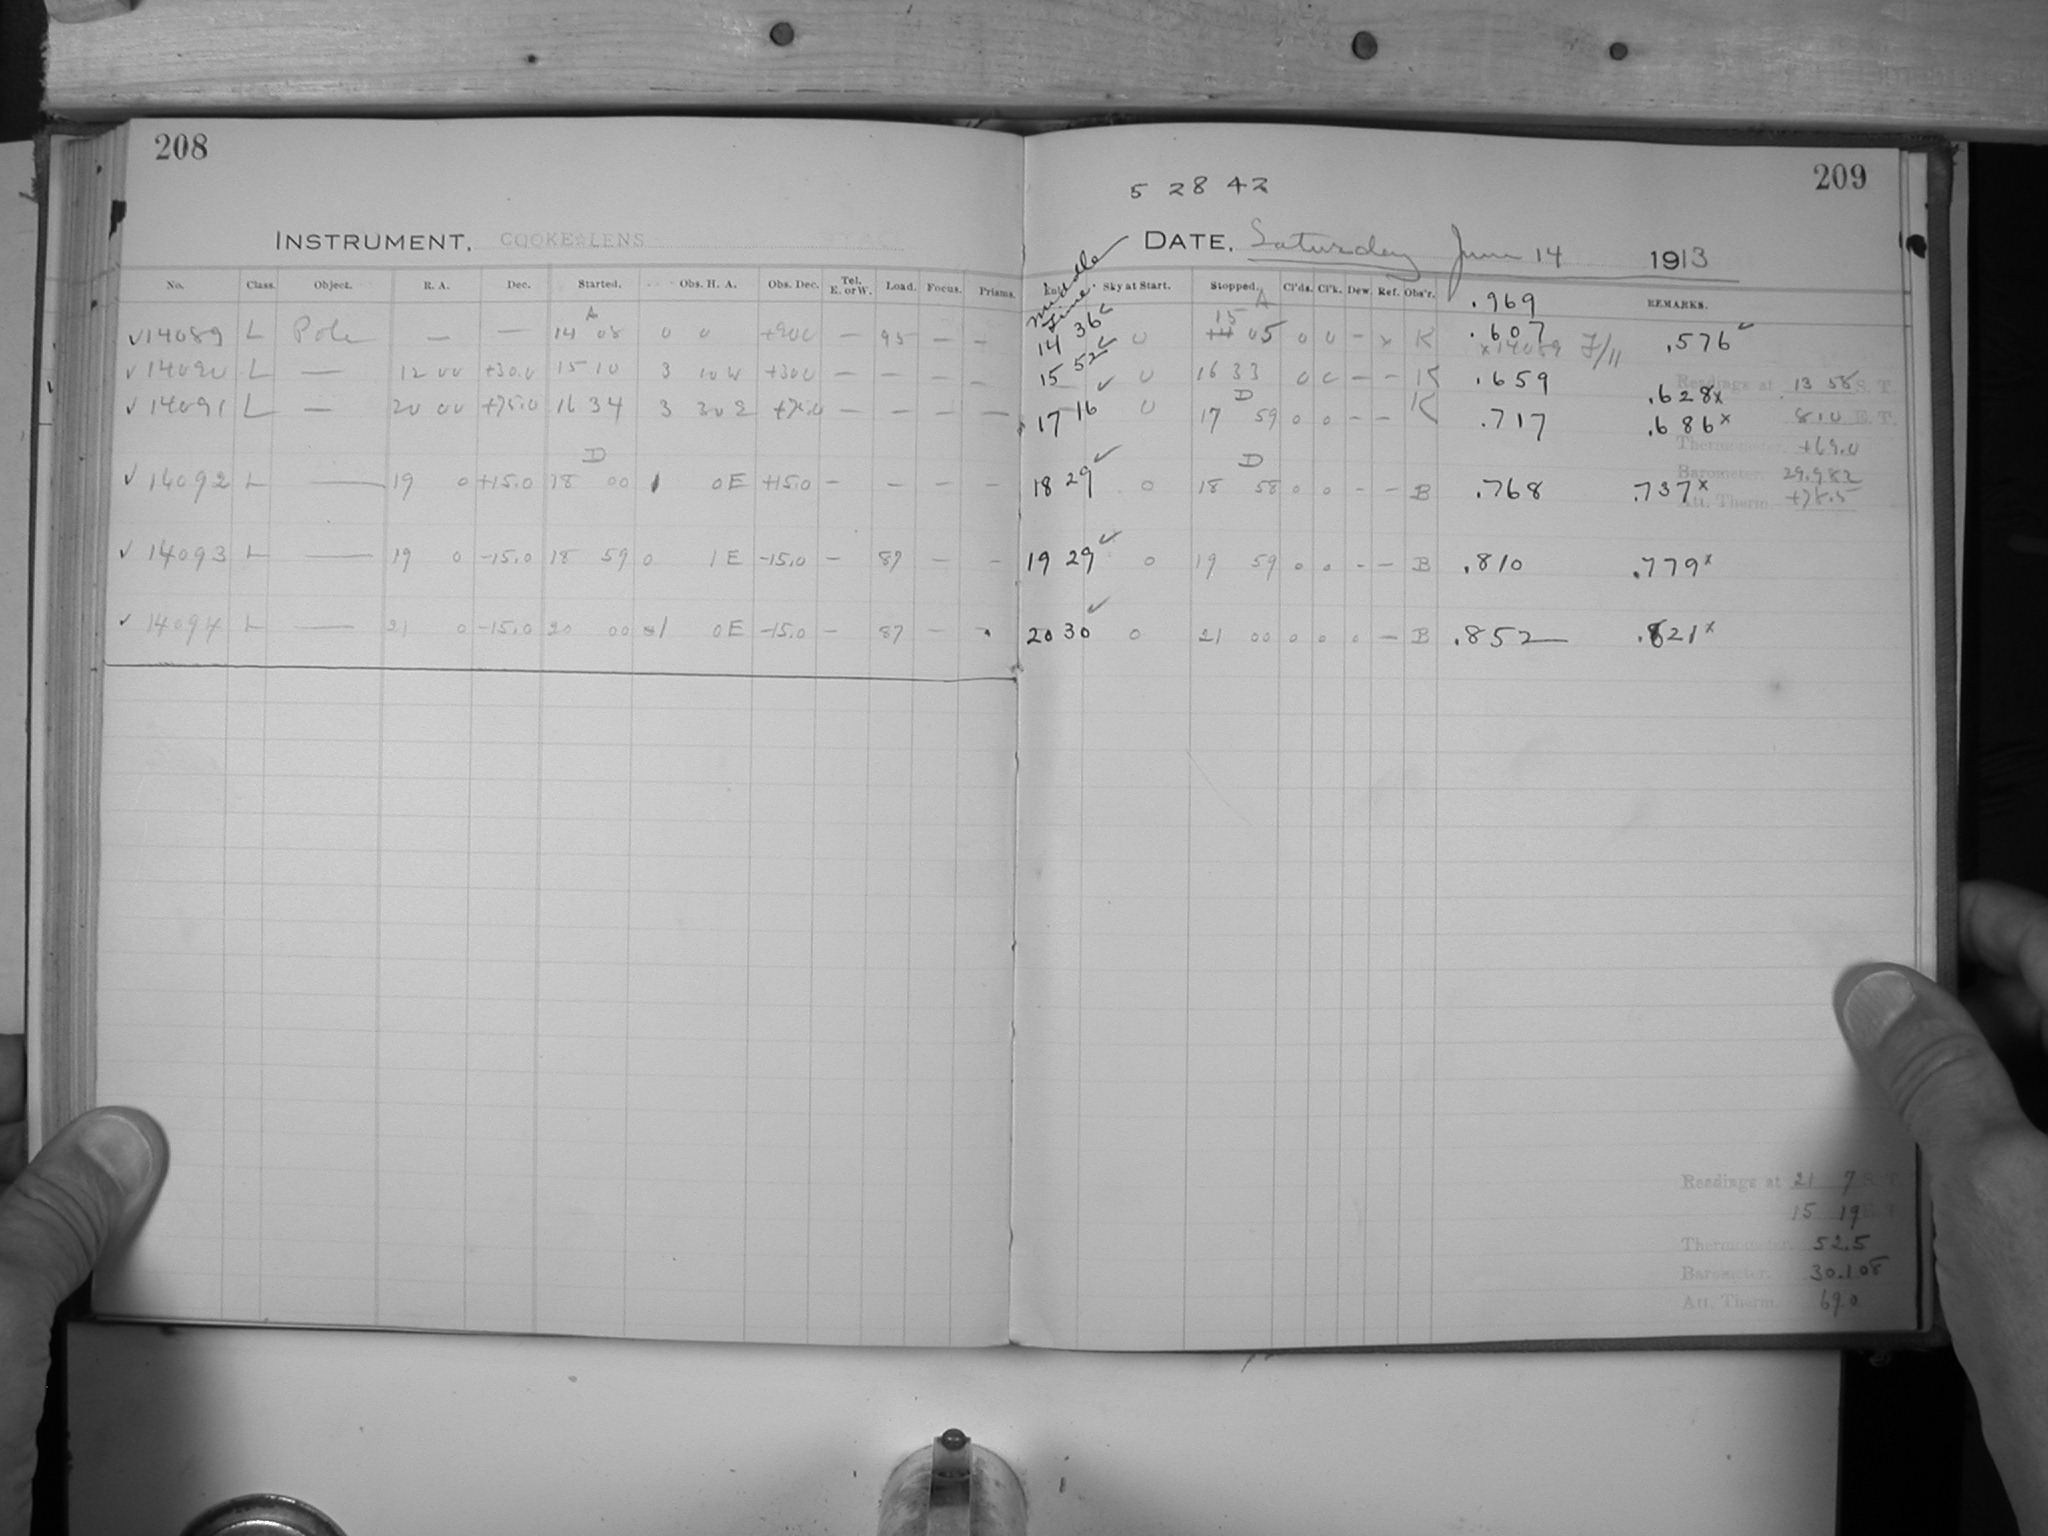 208
209
5 28 42
INSTRUMENT. COOKE LENS
DATE. Saturday June 14 1913
No. Class. Object. R. A. Dec. Started. Obs. H. A. Obs. Dec. Tel. E. or W. Load. Focus. Prisms. Middle Time. Sky at Start. Stopped. Cl'ds. Cl'k. Dew. Ref. Obs'r. .969 REMARKS.
A A
√14089 L Pole — — 14 08 0 0 +900 — 95 — — 14 36 ✓ 0 15 05 0 0 - x K .607 .576 ✓
x14089 F/11
√14090 L — 12 00 +30.0 15 10 3 10 W +300 — — — — 15 52 ✓ 0 16 33 0 0 — — K .659 .628x
Readings at 13 58 S. T.
√14091 L — 20 00 +75.0 16 34 3 30 E +75.0 — — — — 17 16 ✓ 0 D 17 59 0 0 - - K .717 .686x
810 E. T.
Thermometer. +69.0
Barometer. 29.982
Att. Therm. +78.5
D D
√14092 L — 19 0 +15.0 18 00 1 0E +15.0 — — — — 18 29 ✓ 0 18 58 0 0 - - B .768 .737x
√14093 L — 19 0 -15.0 18 59 0 1E -15.0 — 87 — — 19 29 ✓ 0 19 59 0 0 - - B .810 .779x
√14094 L — 21 0 -15.0 20 00 1 0E -15.0 — 87 — 20 30 ✓ 0 21 00 0 0 0 — B .852 .821x
Readings at 21 7 S. T.
15 19
Thermometer. 52.5
Barometer. 30.108
Att. Therm. 69.0